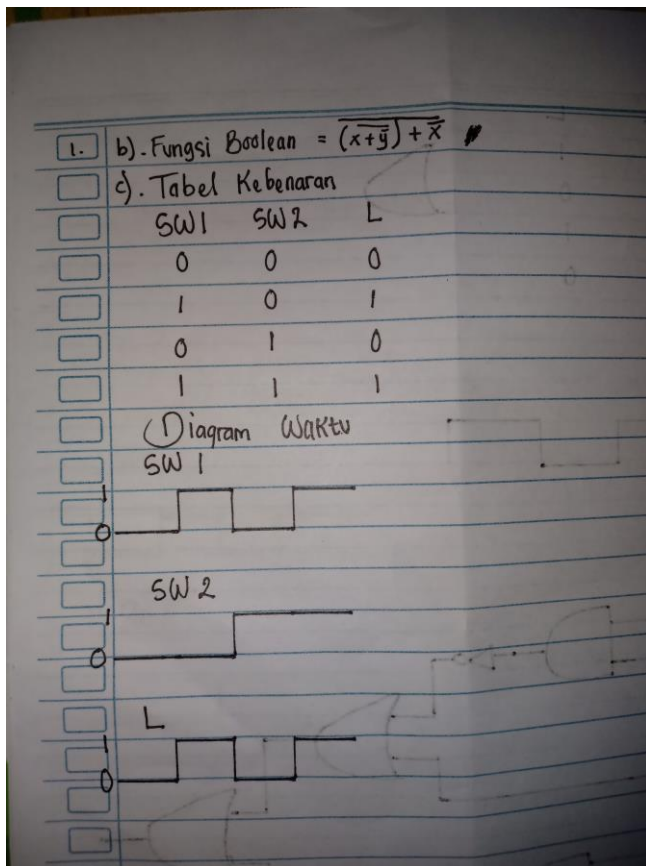 1. b). Fungsi Boolean = \overline{\overline{(x+\bar{y})} + \bar{x}}
c). Tabel Kebenaran
SW1 SW2 L
0 0 0
1 0 1
0 1 0
1 1 1
Diagram Waktu
SW 1
1
0
SW 2
1
0
L
1
0